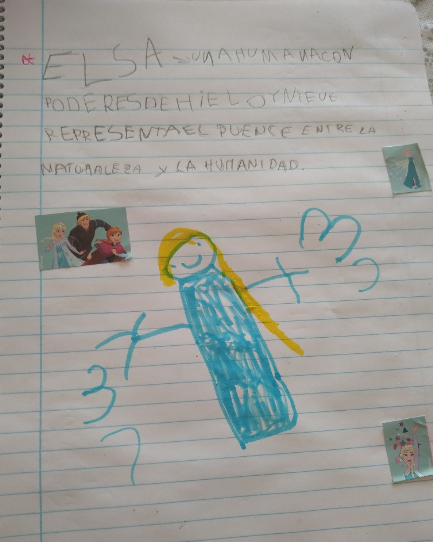 ELSA - UNA HUMANA CON
PODERES DE HIELO Y NIEVE
REPRESENTA EL PUENCE ENTRE LA
NATURALEZA Y LA HUMANIDAD.